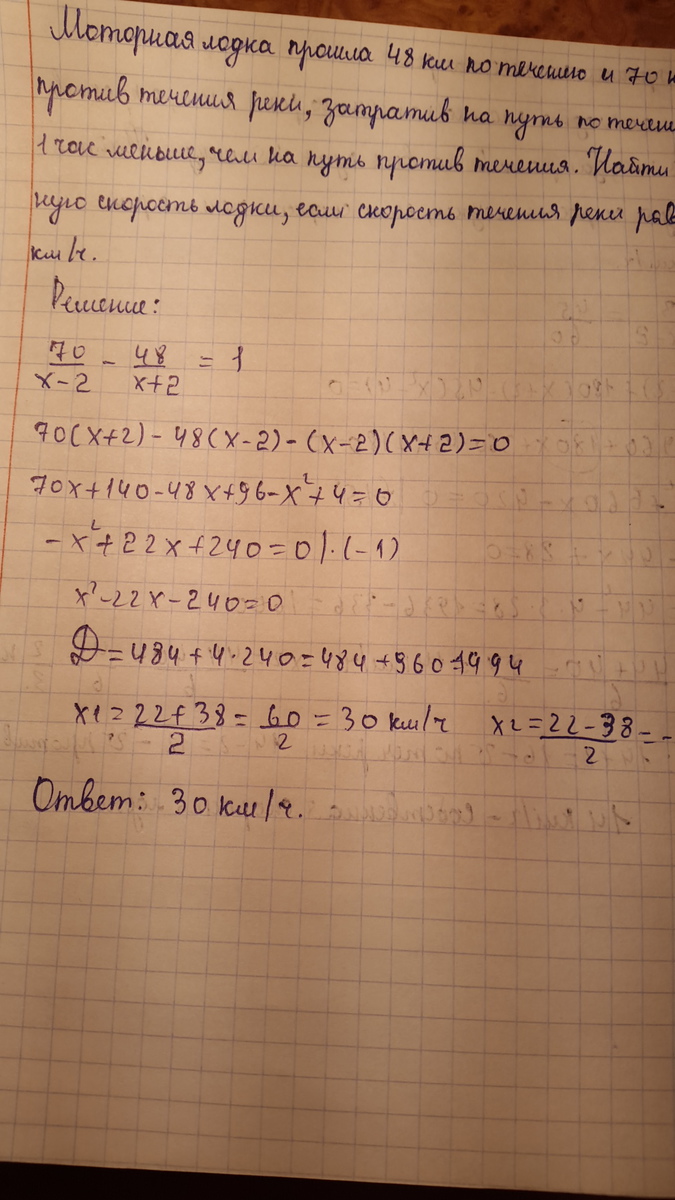 Моторная лодка прошла 48 км по течению и 70
против течения реки, затратив на путь по
1 час меньше, чем на путь против течения. Найти
ную скорость лодки, если скорость течения реки
км/ч.
Решение:
70/(x-2) - 48/(x+2) = 1
70(x+2) - 48(x-2) - (x-2)(x+2) = 0
70x+140-48x+96-x²+4=0
-x²+22x+240=0 |·(-1)
x²-22x-240=0
D=484+4·240=484+960=1444
x1 = (22+38)/2 = 60/2 = 30 км/ч x2 = (22-38)/2 = -
Ответ: 30 км/ч.